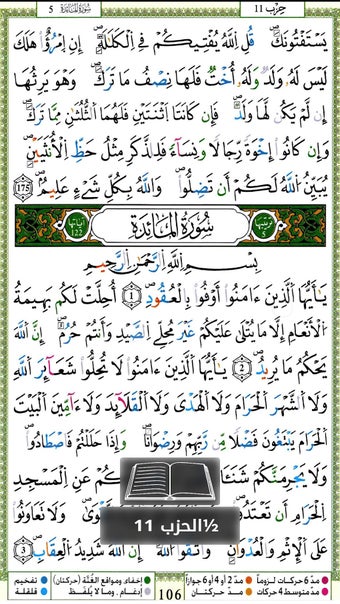 حِزْب 11
سُورَةُ المَائدَة 5
يَسْتَفْتُونَكَ قُلِ اِ۬للَّهُ يُفْتِيكُمْ فِے اِ۬لْكَلَٰلَةِ إِنِ اِ۪مْرُؤٌاْ هَلَكَ
لَيْسَ لَهُۥ وَلَدٌ وَلَهُۥٓ أُخْتٌ فَلَهَا نِصْفُ مَا تَرَكَ وَهُوَ يَرِثُهَآ
إِن لَّمْ يَكُن لَّهَا وَلَدٌ فَإِن كَانَتَا اَ۪ثْنَتَيْنِ فَلَهُمَا اَ۬لثُّلُثَٰنِ مِمَّا تَرَكَ
وَإِن كَانُوٓاْ إِخْوَةً رِّجَالًا وَنِسَآءً فَلِلذَّكَرِ مِثْلُ حَظِّ اِ۬لْأُنثَيَيْنِ
يُبَيِّنُ اُ۬للَّهُ لَكُمْ أَن تَضِلُّواْ وَاللَّهُ بِكُلِّ شَےْءٍ عَلِيمٌ 175
ترتيبها 5 سُورَةُ المَائِدَةِ آياتها 122
بِسْمِ اِ۬للَّهِ اِ۬لرَّحْمَٰنِ اِ۬لرَّحِيمِ
يَٰٓأَيُّهَا اَ۬لَّذِينَ ءَامَنُوٓاْ أَوْفُواْ بِالْعُقُودِ 1 أُحِلَّتْ لَكُم بَهِيمَةُ
اُ۬لْأَنْعَٰمِ إِلَّا مَا يُتْلَىٰ عَلَيْكُمْ غَيْرَ مُحِلِّے اِ۬لصَّيْدِ وَأَنتُمْ حُرُمٌ إِنَّ اَ۬للَّهَ
يَحْكُمُ مَا يُرِيدُ 2 يَٰٓأَيُّهَا اَ۬لَّذِينَ ءَامَنُواْ لَا تُحِلُّواْ شَعَٰٓئِرَ اَ۬للَّهِ
وَلَا اَ۬لشَّهْرَ اَ۬لْحَرَامَ وَلَا اَ۬لْهَدْىَ وَلَا اَ۬لْقَلَٰٓئِدَ وَلَآ ءَآمِّينَ اَ۬لْبَيْتَ
اَ۬لْحَرَامَ يَبْتَغُونَ فَضْلًا مِّن رَّبِّهِمْ وَرِضْوَٰنًا وَإِذَا حَلَلْتُمْ فَاصْطَادُواْ
وَلَا يَجْرِمَنَّكُمْ عَنِ اِ۬لْمَسْجِدِ
اِ۬لْحَرَامِ أَن وَلَا تَعَاوَنُواْ
عَلَى اَ۬لْإِثْمِ وَالْعُدْوَٰنِ وَاتَّقُواْ اُ۬للَّهَ إِنَّ اَ۬للَّهَ شَدِيدُ اُ۬لْعِقَابِ 3
½الحزب 11
مدّ 6 حركات لزوماً مدّ 2 أو 4 أو 6 جوازاً
مدّ متوسط 4 حركات مدّ حركتان
106
إخفاء ومواقع الغنّة (حركتان) تفخيم
إدغام ، وما لا يُلفظ قلقلة